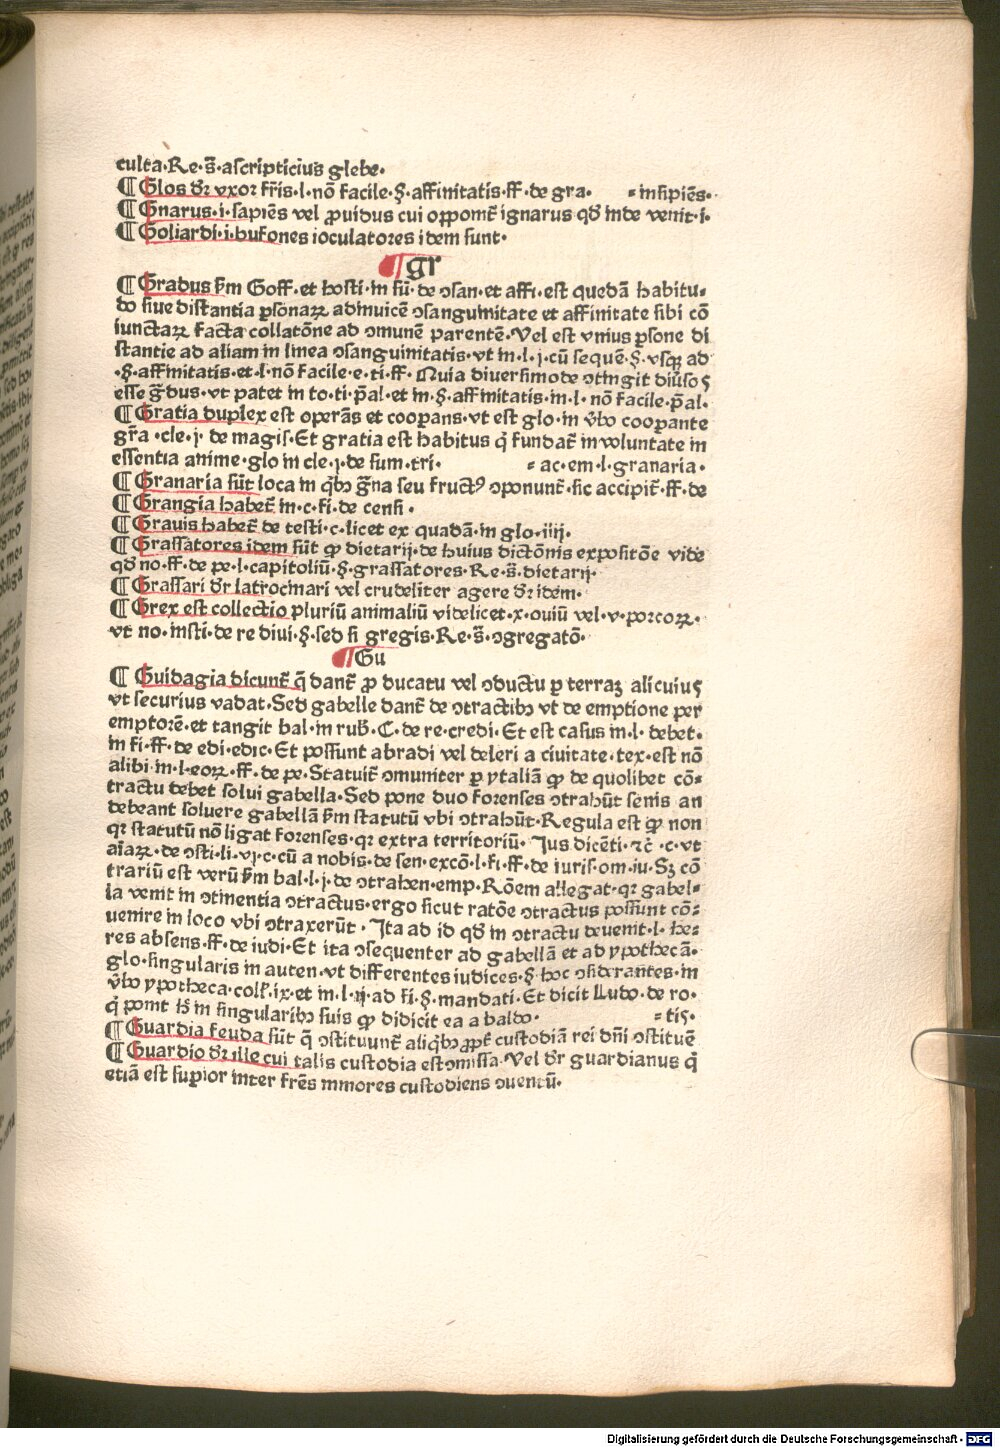 culta·Re·s̄·ascripticius glebe·
¶ Glos dr̄ vxor fr̄is·l·nō facile·§·affinitatis·ff·de gra· ⸗insipiēs·
¶ Gnarus·i·sapiēs vel ꝓuidus cui opponit̄ ignarus qd̄ inde venit·i·
¶ Goliardi·i·bufones ioculatores idem sunt·
¶ gr
¶ Gradus ẜm Goff·et hosti·in sū·de ↄsan·et affi·est quedā habitu⸗
do siue distantia ꝑsonaꝝ adinuicē ↄsanguinitate et affinitate sibi cō
iunctaꝝ facta collatōne ad ↄmunē parentē·Vel est vnius ꝑsone di
stantie ad aliam in linea ↄsanguinitatis·vt in·l·j·cū sequē·§·vsqꝫ ad
·§·affinitatis·et·l·nō facile·e·ti·ff· Quia diuersimode ↄtingit diūsoꝰ
esse ḡdus·vt patet in to·ti·p̄al·et in·§·affinitatis·in·l· nō facile·p̄al·
¶ Gratia duplex est operās et coopans·vt est glo·in v̄bo coopante
gr̄a ·cle·j· de magis·Et gratia est habitus q̄ fundat̄ in voluntate in
essentia anime·glo in cle·j·de sum·tri· ⸗ac·em·l·granaria·
¶ Granaria sūt loca in qͥbꝫ ḡna seu fructꝰ ↄponunt̄·sic accipit̄·ff·de
¶ Grangia habet̄ in·c·fi·de censi·
¶ Grauis habet̄ de testi·c·licet ex quadā·in glo·iiij·
¶ Grassatores idem sūt qꝙ dietarij·de huius dictōnis expositōe vide
qd̄ no·ff·de pe·l·capitoliū·§·grassatores·Re·s̄·dietarij·
¶ Grassari dr̄ latrocinari vel crudeliter agere dr̄ idem·
¶ Grex est collectio pluriū animaliū videlicet·x·ouiū vel·v·porcoꝝ·
vt no·insti·de re diui·§·sed si gregis·Re·s̄·ↄgregatō·
¶ Gu
¶ Guidagia dicunt̄ q̄ dant̄ ꝓ ducatu vel ↄductu ꝑ terraꝫ alicuiuꝰ
vt securius vadat·Sed gabelle dant̄ de ↄtractibꝫ vt de emptione per
emptorē·et tangit bal·in rub̄·C·de re·credi·Et est casus in·l· debet·
in fi·ff·de edi·edic·Et possunt abradi vel deleri a ciuitate·tex·est nō
alibi·in·l·eoꝝ·ff·de pe·Statuit̄ ↄmuniter ꝑ ytaliā ꝙ de quolibet cō⸗
tractu debet solui gabella·Sed pone duo forenses ↄtrahūt senis an
debeant soluere gabellā ẜm statutū vbi ↄtrahūt·Regula est ꝙ non
qꝛ statutū nō ligat forenses·qꝛ extra territoriū· Jus dicēti·ꝛc̄ ·c·vt
aīaꝝ·de ↄsti·li·vj·c·cū a nobis·de sen·excō·l·fi·ff·de iuris·om·iu·Sꝫ cō
trariū est verū ẜm bal·l·j·de ↄtrahen·emp·Rōem allegat·qꝛ gabel⸗
la venit in ↄtinentia ↄtractus·ergo sicut ratōe ↄtractus possunt cō⸗
uenire in loco vbi ↄtraxerūt· Jta ad id qd̄ in ↄtractu deuenit·l·he⸗
res absens·ff·de iudi·Et ita ↄsequenter ad gabellā et ad ypothecā·
glo·singularis in auten·vt differentes iudices·§·hoc ↄsiderantes·in
v̄bo ypotheca·coll̄·ix·et in·l·ij·ad fi·§·mandati·Et dicit Ludo·de ro·
q̄ ponit hͦ in singularibꝫ suis ꝙ didicit ea a baldo· ⸗tis·
¶ Guardia feuda sūt q̄ ↄstituunt̄ aliqͥbꝫ ꝓpt̄ custodiā rei dn̄i ↄstituē
¶ Guardio dr̄ ille cui talis custodia est ↄmissa·Vel dr̄ guardianus q̄
etiā est supior inter frēs minores custodiens ↄuentū·
Digitalisierung gefördert durch die Deutsche Forschungsgemeinschaft - DFG